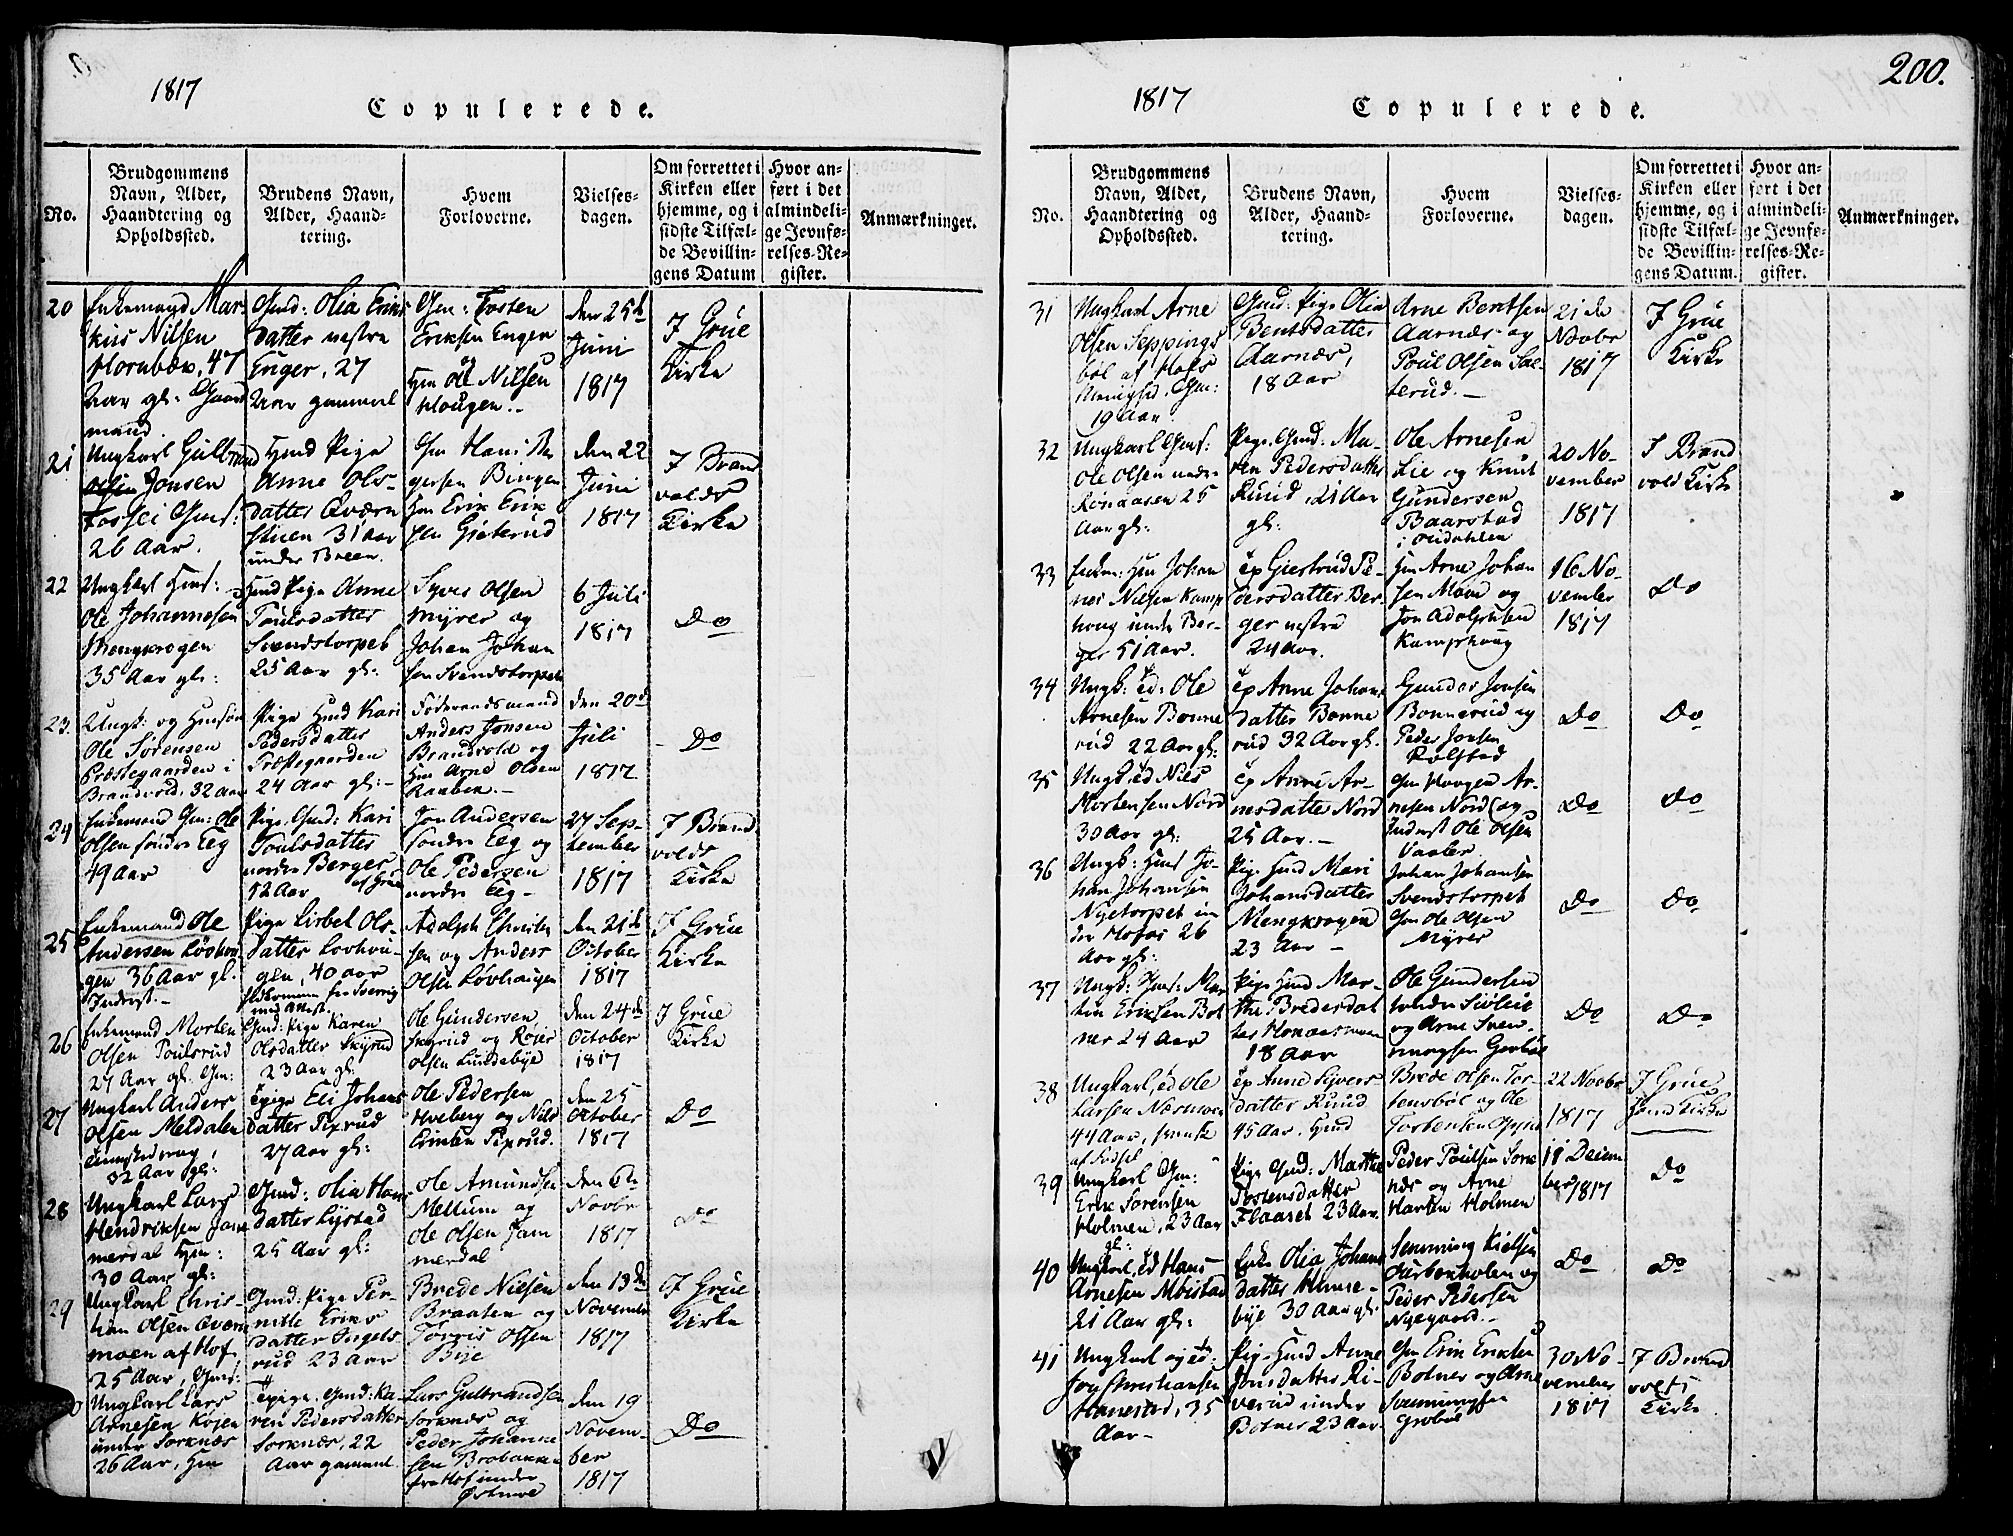 1817
Copulerede.
No.
Brudgommens
Navn, Alder,
Haandtering og
Opholdssted.
Brudens Navn,
Alder, Haand-
tering.
Hvem
Forloverne.
Vielses-
dagen.
Om forrettet i
Kirken eller
hjemme, og i
sidste Tilfæl-
de Bevillin-
gens Datum
Hvor an-
ført i det
almindeli-
ge Jevnfø-
relses-Re-
gister.
Anmærkninger.
20
Enkemand Mar-
kus Nilsen
Hornbæk, 47
Aar gl: Gaard
mand
Gmd: Olia Eriks
datter nestre
Enger, 27
Aar gammel
Gm: Tosten
Eriksen Enger
og
Hm Ole Nilsen
Hougen.
den 25de
Juni
1817
I Grue
Kirke
21
Ungkarl Gulbrand
Jonsen
Fossei Gms:
26 Aar.
Hmd Pige
Anne Ols-
datter Qværn
stuen 31 Aar
under Breen.
Gm Hans Be
gersen Bingen
Hm Erik Erik
sen Gjeterud
den 22
Juni
1817
I Brand
volds
Kirke
22
Ungkarl Hms:
Ole Johannesen
Mengkrogen
35 Aar gl:
Hmd Pige Anne
Poulsdatter
Svendstorpet
25 Aar gl:
Syver Olsen
Myrer og
Johan Johan
sen Svendstorpet
6 Juli
1817
Do
23.
Ungk: og Hmsøn
Ole Sørensen
Præstegaarden i
Brandvold, 32 Aar
Pige Hmd Kari
Pedersdatter
Præstegaarden
24 Aar gl:
Føderaadsmand
Anders Jonsen
Brandvold og
Hm Arne Olsen
Raaben.
den 20de
Juli
1817
Do
24
Enkemand Gm: Ole
Olsen søndre Eeg
49 Aar
Pige. Gmd: Kari
Poulsdatter
nordre Berger
52 Aar af Grue
Jon Andersen
søndre Eeg og
Ole Pedersen
nordre Eeg
27 Sep-
tember
1817
I Brand
volds
Kirke
25
Enkemand Ole
Andersen Løvhou
gen 36 Aar gl.
Inderst.
Pige Lisbet Ols-
datter Lovhou-
gen, 40 aar
med Attest.
Adolph Christen
sen og Anders
Olsen Løvhaugen
den 21de
October
1817
I Grue
Kirke
26
Enkemand Morten
Olsen Poulsrud
27 Aar gl. Gm:
Gmd: Pige Karen
Olsdatter Skyrud
23 Aar gl:
Ole Gundersen
Skyrud og Røier
Olsen Lundebye
den 24de
October
1817
I Grue
Kirke
27
Ungkarl Anders
Olsen Meldalen
32 Aar gl:
Pige Eli Johans
datter Piprud
27 Aar gl:
Ole Pedersen
Hveberg og Nils
Ersen Piprud.
den 25
October
1817
Do
28
Ungkarl Lars
Hendriksen Jam
merdal Hm:
30 Aar gl:
Gmd: Olia Hans
datter Lystad
25 Aar gl:
Ole Amundsen
Mellum og
Ole Olsen Jam
merdal
den 6te
Novbr
1817
Do
29
Ungkarl Chris-
tian Olsen Qværn
moen af Hof
25 Aar, Gms:
Gmd: Pige Per-
nille Eriks
datter Ingels
rud 23 aar
Brede Nielsen
Braaten og
Torris Olsen
Bye
den 13de
November
1817
I Grue
Kirke
Ungkarl Lars
Arnesen Kojen
under Sorknæs
26 Aar, Hm
Pige. Gmd: Ka-
ren Pedersdatter
Sorknæs, 22
Aar gammel
Lars Gulbrandsen
Sorknæs og
Peder Johanne
sen Brobakken
fra Hof under
den 19
Novem-
ber
1817
Do
1817
Copulerede.
200.
No.
Brudgommens
Navn, Alder,
Haandtering og
Opholdssted.
Brudens Navn,
Alder, Haand-
tering.
Hvem
Forloverne.
Vielses-
dagen.
Om forrettet i
Kirken eller
hjemme, og i
sidste Tilfæl-
de Bevillin-
gens Datum.
Hvor an-
ført i det
almindeli-
ge Jevnfø-
relses-Re-
gister.
Anmærkninger.
31
Ungkarl Arne
Olsen Seppings
bøl af Hofs
Gm:
19 Aar
Gmd: Pige Olia
Bentsdatter
Aarnæs,
18 Aar
Arne Bentsen
Aarnæs og
Poul Olsen Sæ-
terud.
21 de
Novbr
1817
I Grue
Kirke
32
Ungkarl Gms:
Ole Olsen nedre
Rønaasen 25
Aar gl:
Pige. Gmd: Ma-
ren Pedersdatter
Ruud, 21 Aar
gl:
Ole Arnesen
Lie og Knut
Gundersen
Baarstad
i Eidahlen
20 No-
vember
1817
I Brand
vold Kirke
33
Enkm: Hm Johan
nes Nilsen Kamp
houg under Ber-
ger 51 Aar.
Gjertrud Pe-
dersdatter Ber-
ger nestre
24 Aar.
Hm Arne Johan
sen Moen og
Jon Adolphsen
Kamphoug
16 No-
vember
1817
Do
34
Ungk: Ole
Arnesen Bonne
rud 22 Aar gl:
Anne Johans
datter Bonne
rud 32 Aar gl.
Gunder Jonsen
Bonnerud og
Peder Jonsen
Rolstad
Do
Do
35
Ungk: Niels
Mortensen Nord
30 Aar gl:
Anne Ar-
nesdatter Nord
25 Aar.
Gm Haagen Ar-
nesen Nord og
Inderst Ole Olsen
Vaaler
Do
Do
36
Ungk: Hms Jo-
han Johansen
Nyetorpet un
der Hofos 26
Aar gl:
Pige Hmd Mari
Johansdatter
Mengkrogen
23 Aar
Johan Johansen
Svendstorpet
Gm Ole Olsen
Myrer
Do
Do
37
Ungk: Hms: Mar
tin Eriksen Bot
ner 24 Aar
Pige Hmd Mar-
the Bredesdat
ter
18 Aar
Ole Gundersen
og Arne Svem-
mingsen Grobøl
Do
Do
38
Ungkarl, Ole
Larsen Næsmoen
44 Aar,
af Fødsel
Anne Syvers
datter Ruud
45 Aar. Hmd
Brede Olsen Tor-
tensbøl og Ole
Torbensen Oppe
22 Novbr
1817
I Grue
Kirke
39
Ungkarl Gm:
Erik Sørensen
Holmen, 23 Aar
gl:
Pige Gmd: Marthe
Tostensdatter
Flaaret 23 Aar.
Peder Poulsen Sørk
næs og Arne
Holmen
11 Decem
ber 1817
Do
40
Ungkarl, Hans
Arnesen Moistad
21 Aar gl:
Enke Olia Johans
datter Hunne-
bye 30 Aar gl.
Svemming Kielsen
Aurbekholen og
Peder Pedersen
Nyegaard.
Do
Do
41
Ungkarl og
Christiansen
Hanestad, 35
Aar
Pige Hmd Anne
Jonsdatter Ri-
verud under
Botner 23 Aar
Gm Erik Eriksen
Botner og Arne
Svemmingsen
Grobøl
30 No-
vember
1817
I Brand
volds
Kirke